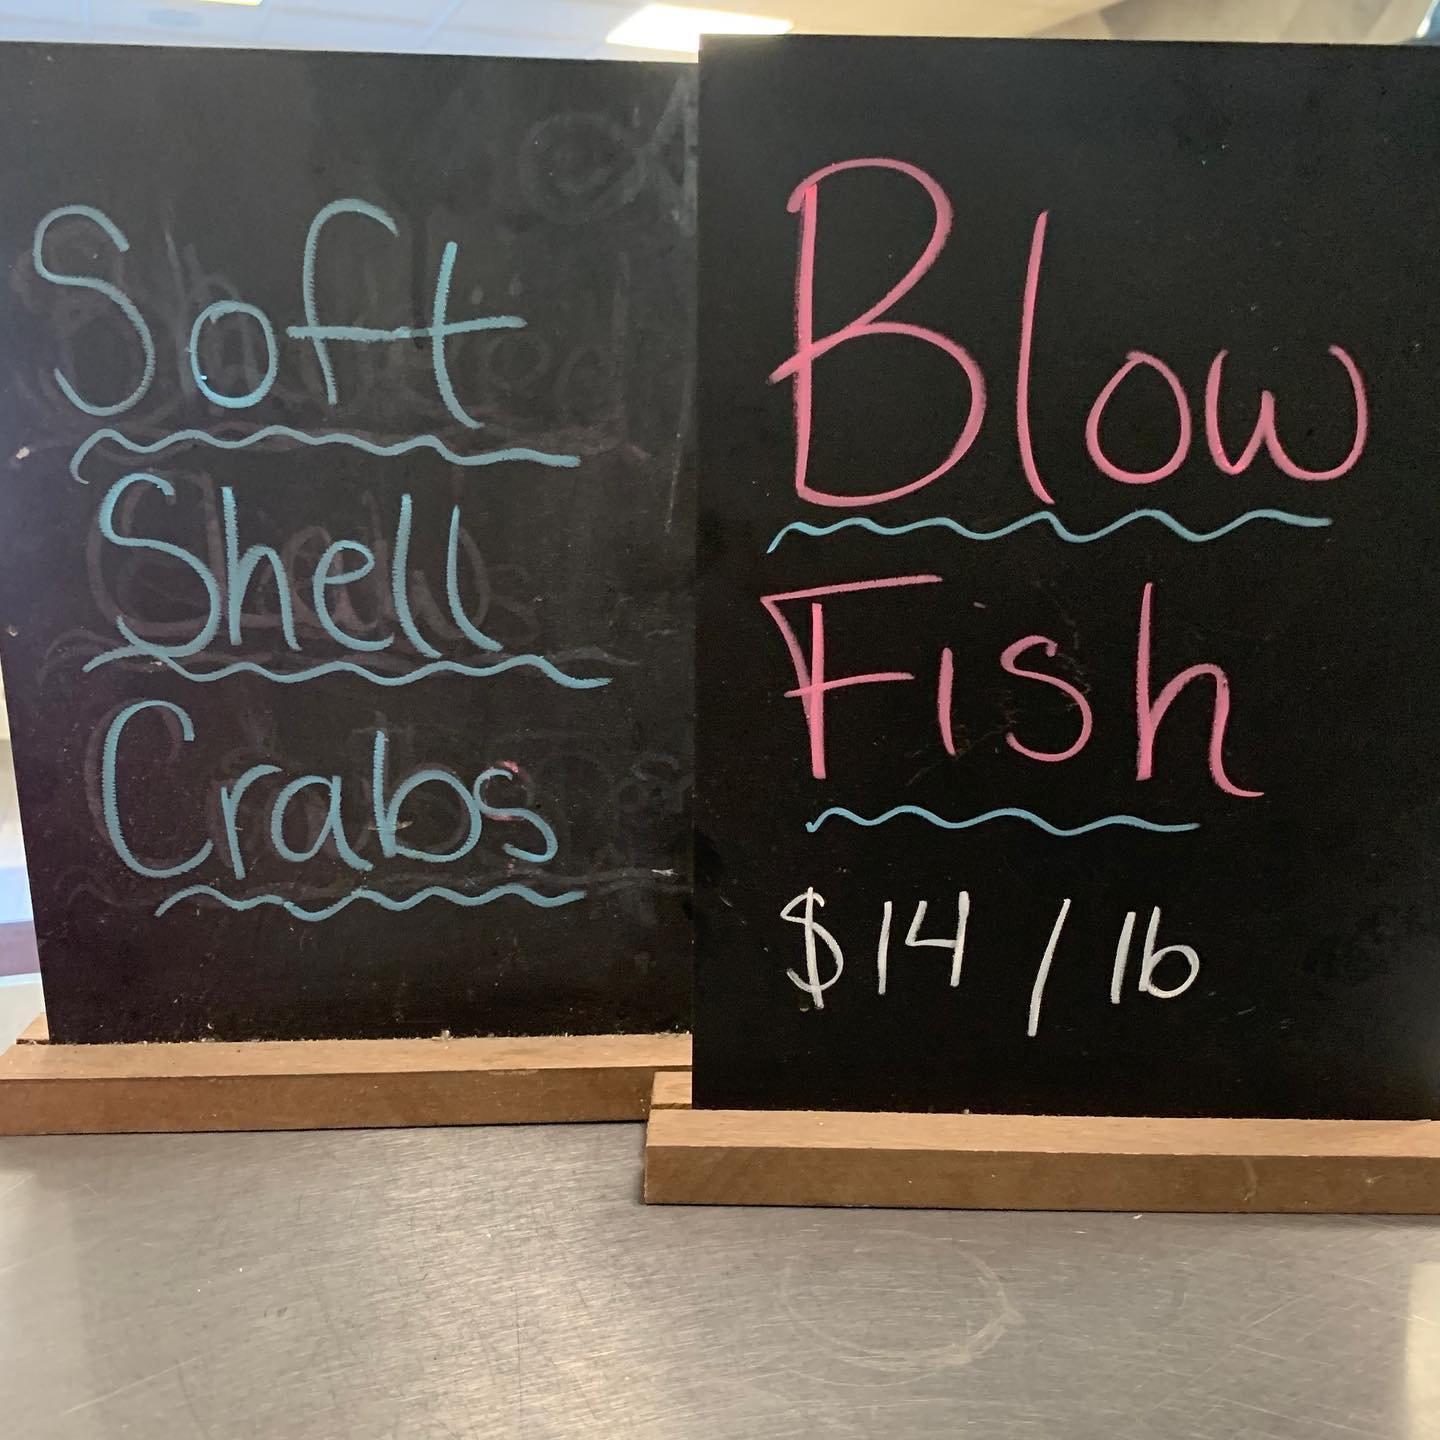 Soft
Shell
Crabs
Blow
Fish
$14/lb